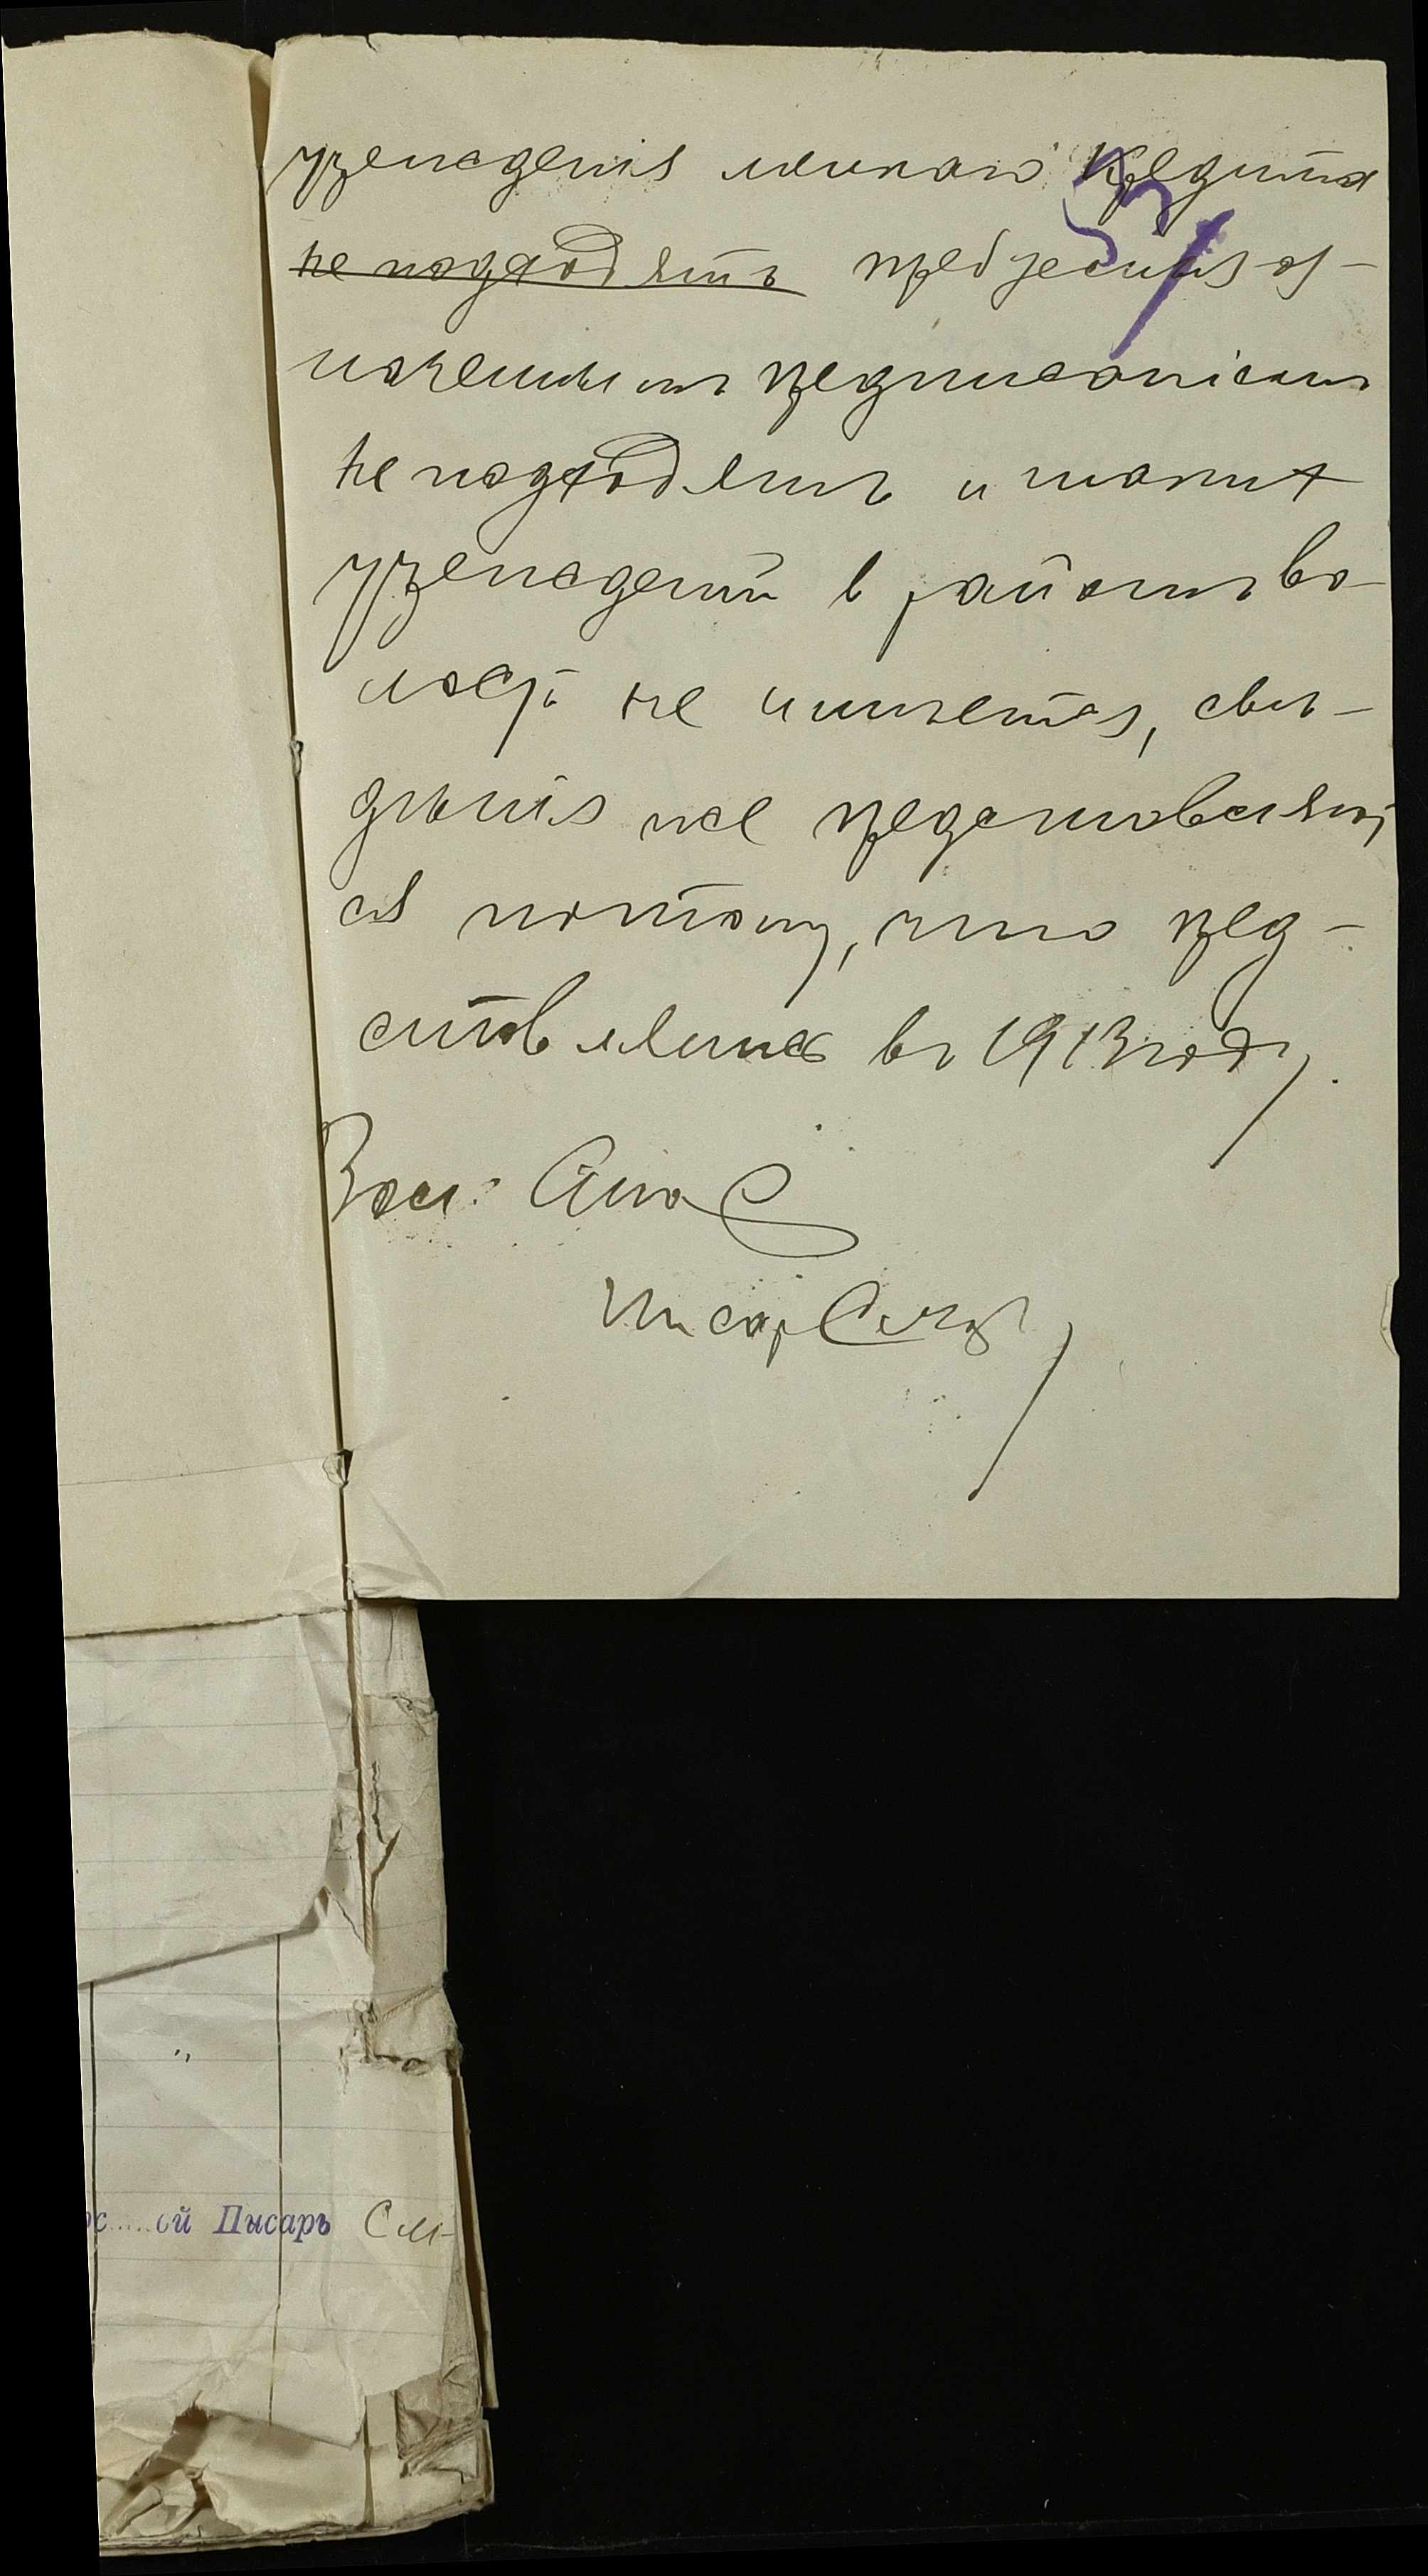 учрежденiя мелкаго Кредита
не подходятъ требуемымъ оз-
наченнымъ предписанiемъ
не подходятъ и такихъ
учрежденiй в районъ во-
лости не имѣется, свѣ-
дѣнiя же представляют
ся потому, что пред-
ставлялись въ 1913 году.
Вол. Ста
Писарь
ой Писарь См-